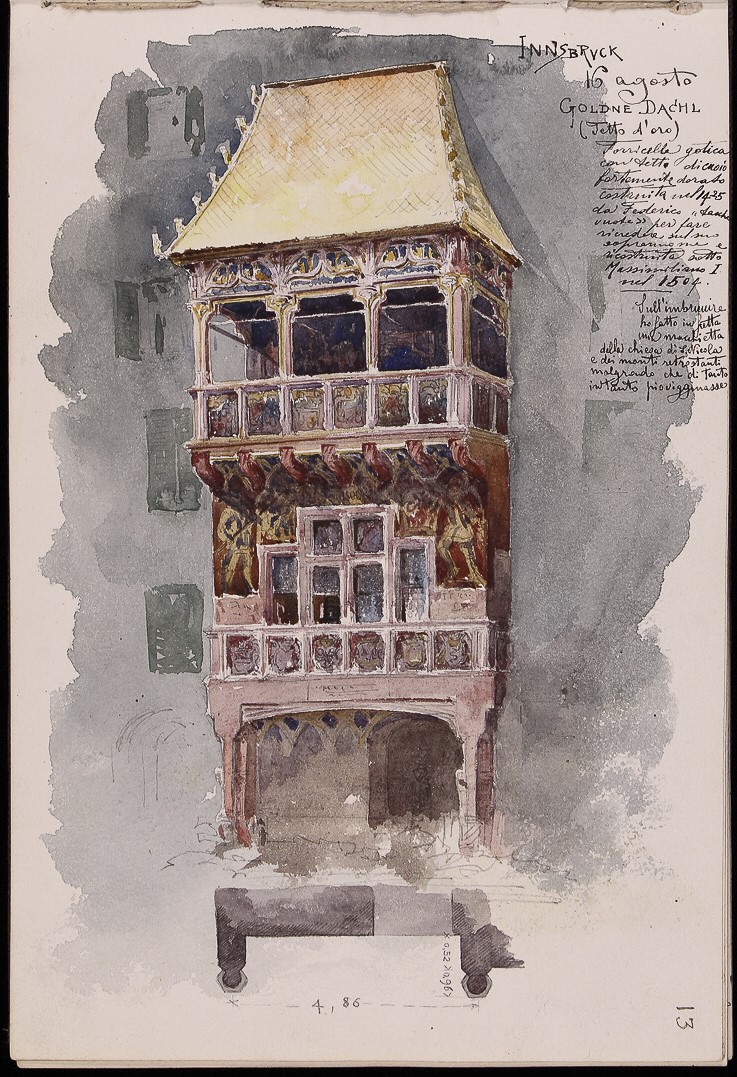 INNSBRVCK
16 agosto
GOLDNE DACHL
(Tetto d'oro)
Torricella gotica
con tetto di cuoio
fortemente dorato
costruita nel 1425
da Federico „
per fare
ricredere sul suo
soprannome e
ricostruita sotto
Massimiliano I
nel 1504.
Sull'imbrunire
ho fatto in fretta
una macchietta
della chiesa di S. Nicola
e dei monti retrostanti
malgrado che di tanto
in tanto piovigginasse
0,52
0,96
4,86
13